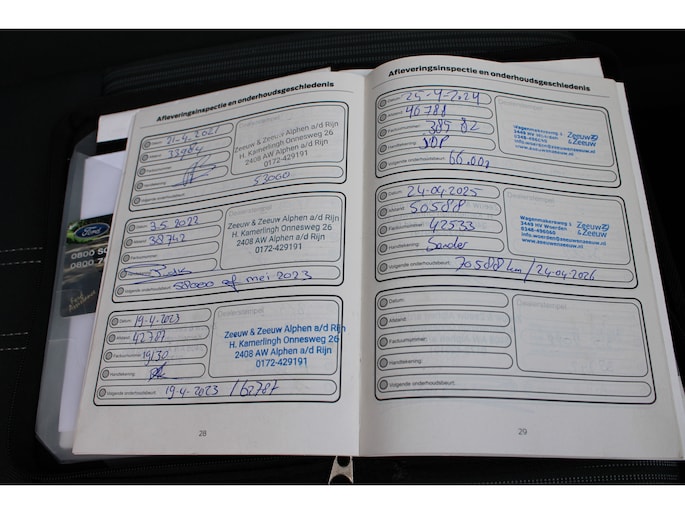 Ford
0800
0800
Afleveringsinspectie en onderhoudsgeschiedenis
Datum: 21-4-2021
Afstand: 33984
Handtekening:
53000
Zeeuw & Zeeuw Alphen a/d Rijn
H. Kamerlingh Onnesweg 26
2408 AW Alphen a/d Rijn
0172-429191
Datum: 3.5.2022
Afstand: 38742
Factuurnummer:
Volgende onderhoudsbeurt: 58000 of mei 2023
Dealerstempel
Zeeuw & Zeeuw Alphen a/d Rijn
H. Kamerlingh Onnesweg 26
2408 AW Alphen a/d Rijn
0172-429191
Datum: 19-4-2023
Afstand: 42787
Factuurnummer: 19130
Handtekening:
Volgende onderhoudsbeurt: 19-4-2023 / 62787
Dealerstempel
Zeeuw & Zeeuw Alphen a/d Rijn
H. Kamerlingh Onnesweg 26
2408 AW Alphen a/d Rijn
0172-429191
28
Afleveringsinspectie en onderhoudsgeschiedenis
Datum: 25-4-2024
Afstand: 46788
Factuurnummer: 38582
Handtekening:
Volgende onderhoudsbeurt: 66.000
Wagenmakersweg 1
3449 HV Woerden
0348-496060
Zeeuw & Zeeuw
www.zeeuwenzeeuw.nl
Datum: 24-04-2025
Afstand: 50588
Factuurnummer: 42533
Handtekening: Sander
Volgende onderhoudsbeurt: 70588 km / 24-04-2026
Dealerstempel
Wagenmakersweg 1
3449 HV Woerden
0348-496060
Zeeuw & Zeeuw
www.zeeuwenzeeuw.nl
Datum:
Afstand:
Factuurnummer:
Handtekening:
Volgende onderhoudsbeurt:
Dealerstempel
29